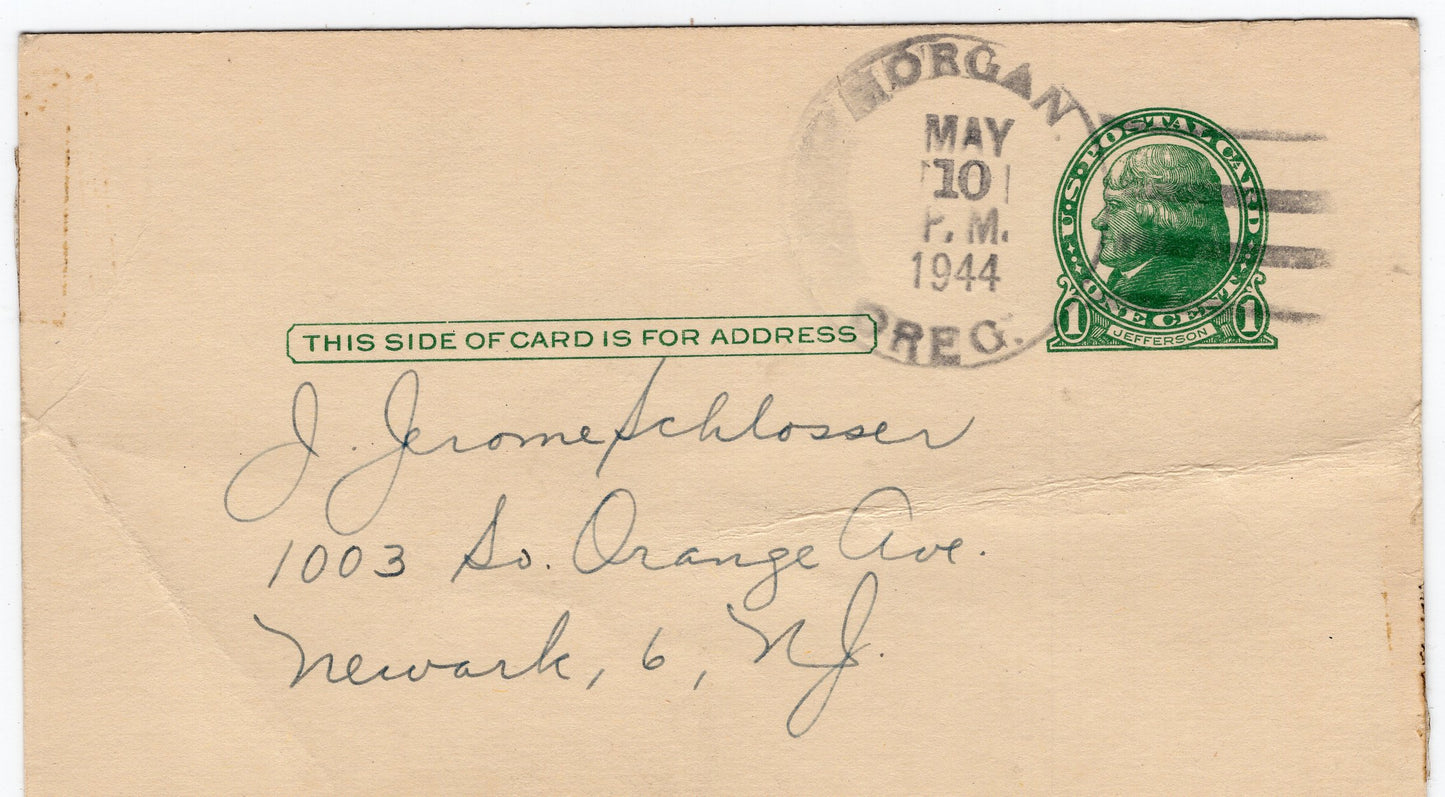 MORGAN.
MAY
10
P. M.
1944
OREG.
U.S. POSTAL CARD
ONE CENT
1 JEFFERSON 1
THIS SIDE OF CARD IS FOR ADDRESS
J. Jerome Schlosser
1003 So. Orange Ave.
Newark, 6, N.J.